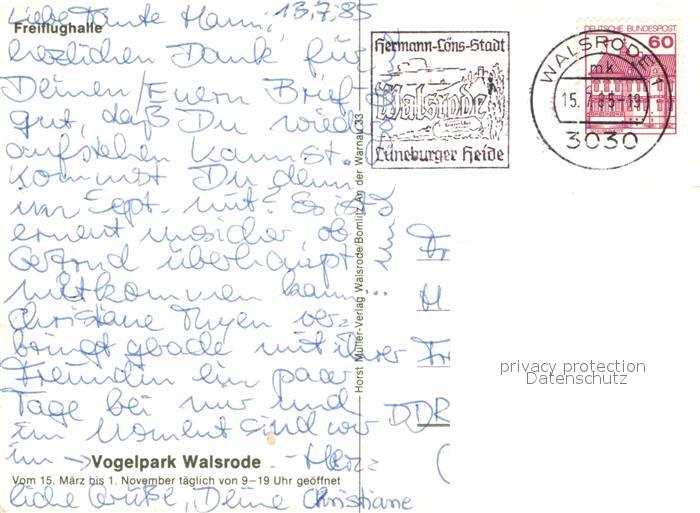 Liebe Tante Hanni, 13.7.85
Freiflughalle
herzlichen Dank für
Deinen/Euern Brief
gut, daß Du wieder
aufstehen kannst.
Kommst Du denn
im Sept. mit? Es ist
erneut unsicher, ob
Gertrud überhaupt
mitkommen kann...
Christiane Thyen ver-
bringt gerade mit ihrer
Freundin ein paar
Tage bei mir und
im Moment sind wir
im → Vogelpark Walsrode - Herz-
Vom 15. März bis 1. November täglich von 9–19 Uhr geöffnet
liche Grüße, Deine Christiane
Horst Müller-Verlag Walsrode/Bomlitz An der Warnau 33
Hermann-Löns-Stadt
Walsrode
Lüneburger Heide
WALSRODE 1
mk
15.-7.85.-19
3030
DEUTSCHE BUNDESPOST
60
Fr
H
Fr
DDR
privacy protection
Datenschutz